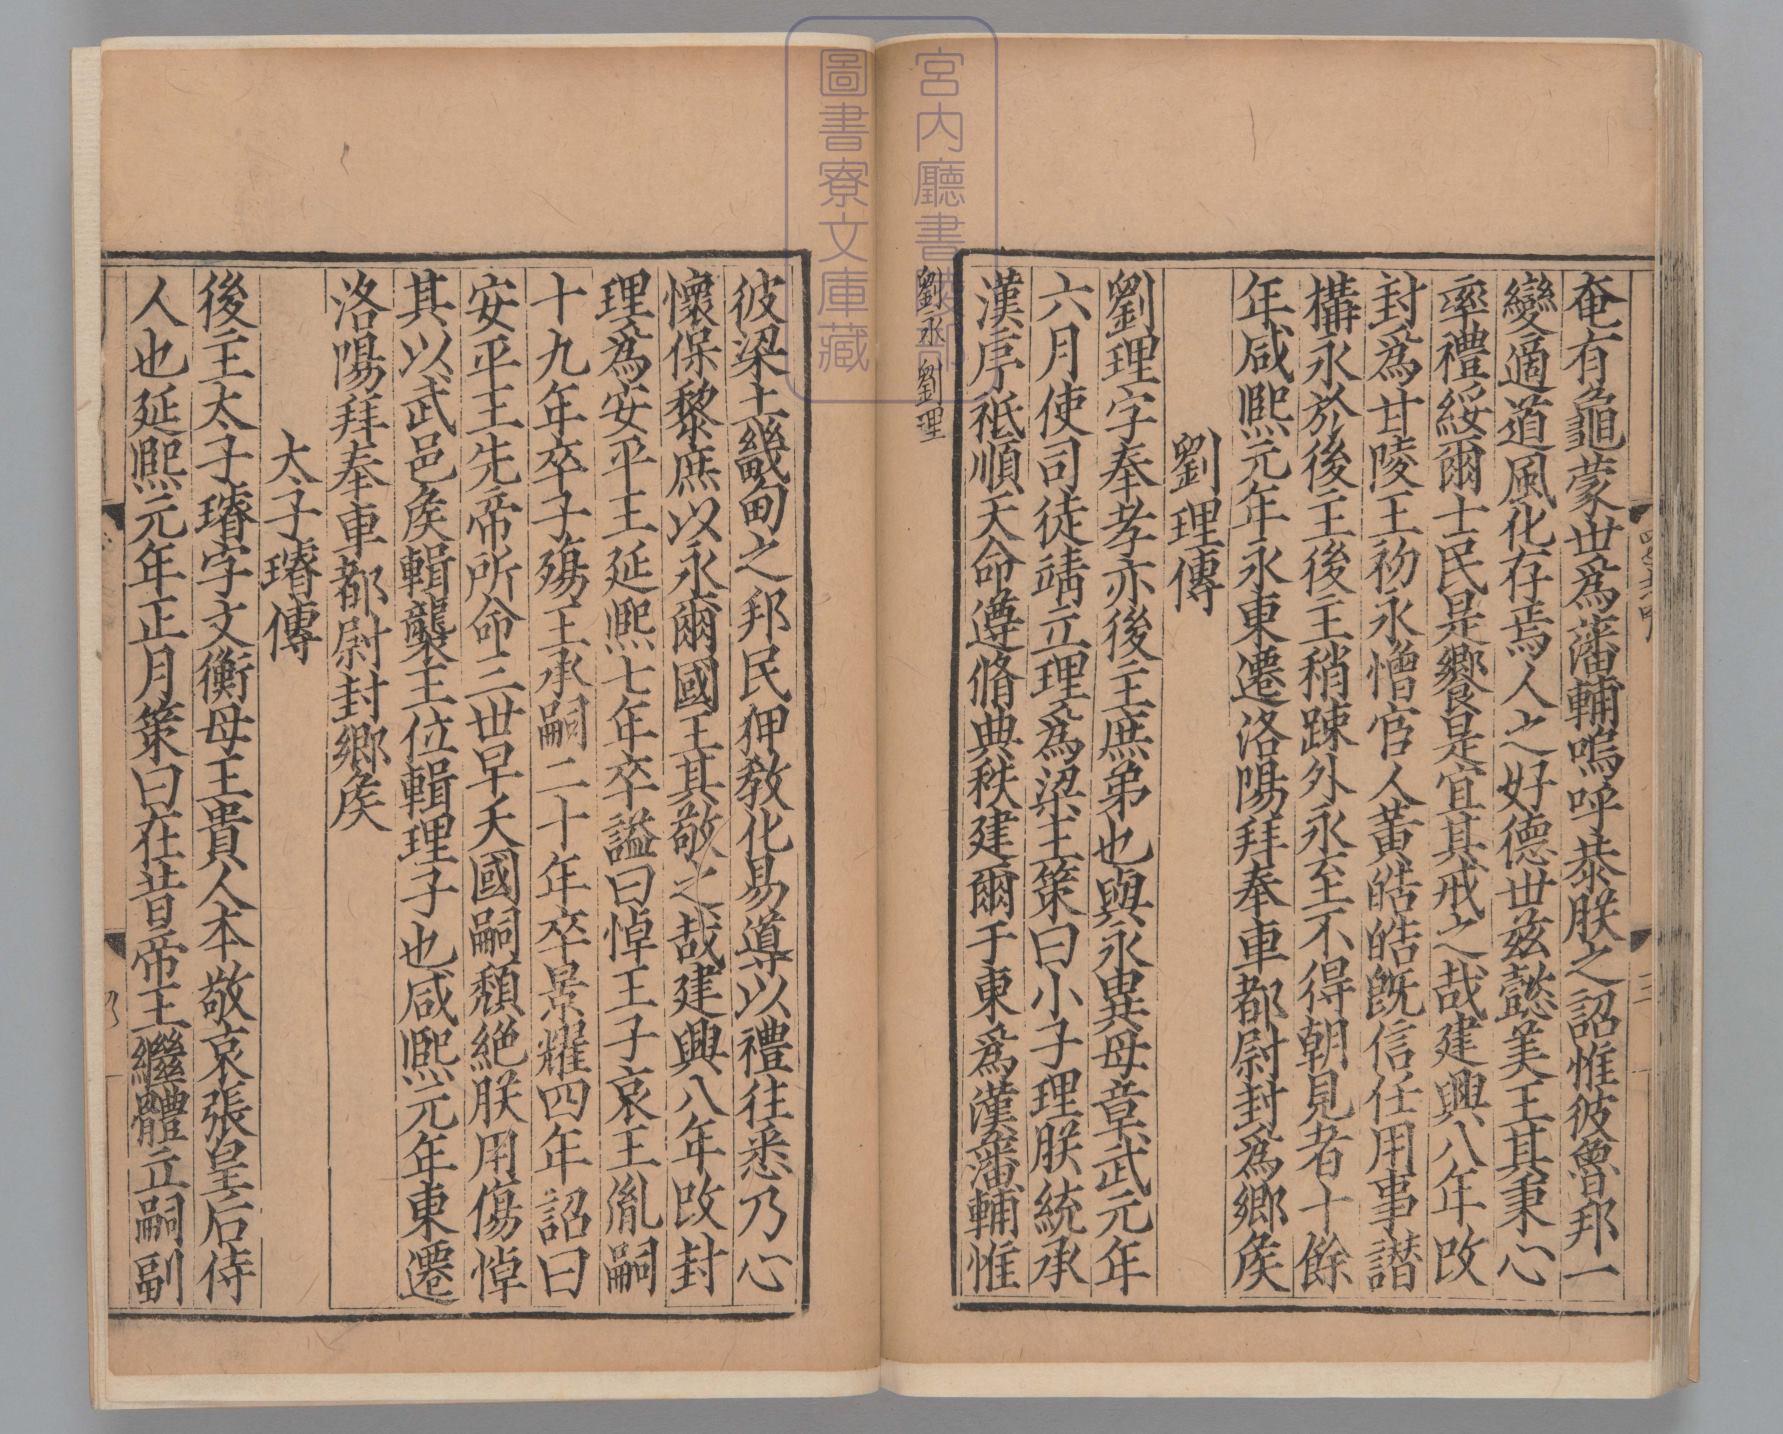 奄有龜蒙世爲藩輔嗚呼恭朕之詔惟彼魯邦一
變適道風化存焉人之好德世茲懿美王其秉心
率禮綏爾士民是饗是宜其戒之哉建興八年改
封爲甘陵王初永憎宦人黃皓皓旣信任用事譖
構永於後主後主稍踈外永至不得朝見者十餘
年咸熙元年永東遷洛陽拜奉車都尉封爲鄉侯
劉理傳
劉理字奉孝亦後主庶弟也與永異母章武元年
六月使司徒靖立理爲梁王策曰小子理朕統承
漢序祗順天命遵脩典秩建爾于東爲漢藩輔惟
劉永劉理
彼梁土畿甸之邦民狎敎化易導以禮往悉乃心
懷保黎庶以永爾國王其敬之哉建興八年改封
理爲安平王延熙七年卒謚曰悼王子哀王胤嗣
十九年卒子殤王承嗣二十年卒景耀四年詔曰
安平王先帝所命三世早夭國嗣頹絶朕用傷悼
其以武邑侯輯襲王位輯理子也咸熙元年東遷
洛陽拜奉車都尉封鄉侯
太子璿傳
後主太子璿字文衡母王貴人本敬哀張皇后侍
人也延熙元年正月策曰在昔帝王繼體立嗣副
宮内廳書陵部
圖書寮文庫藏